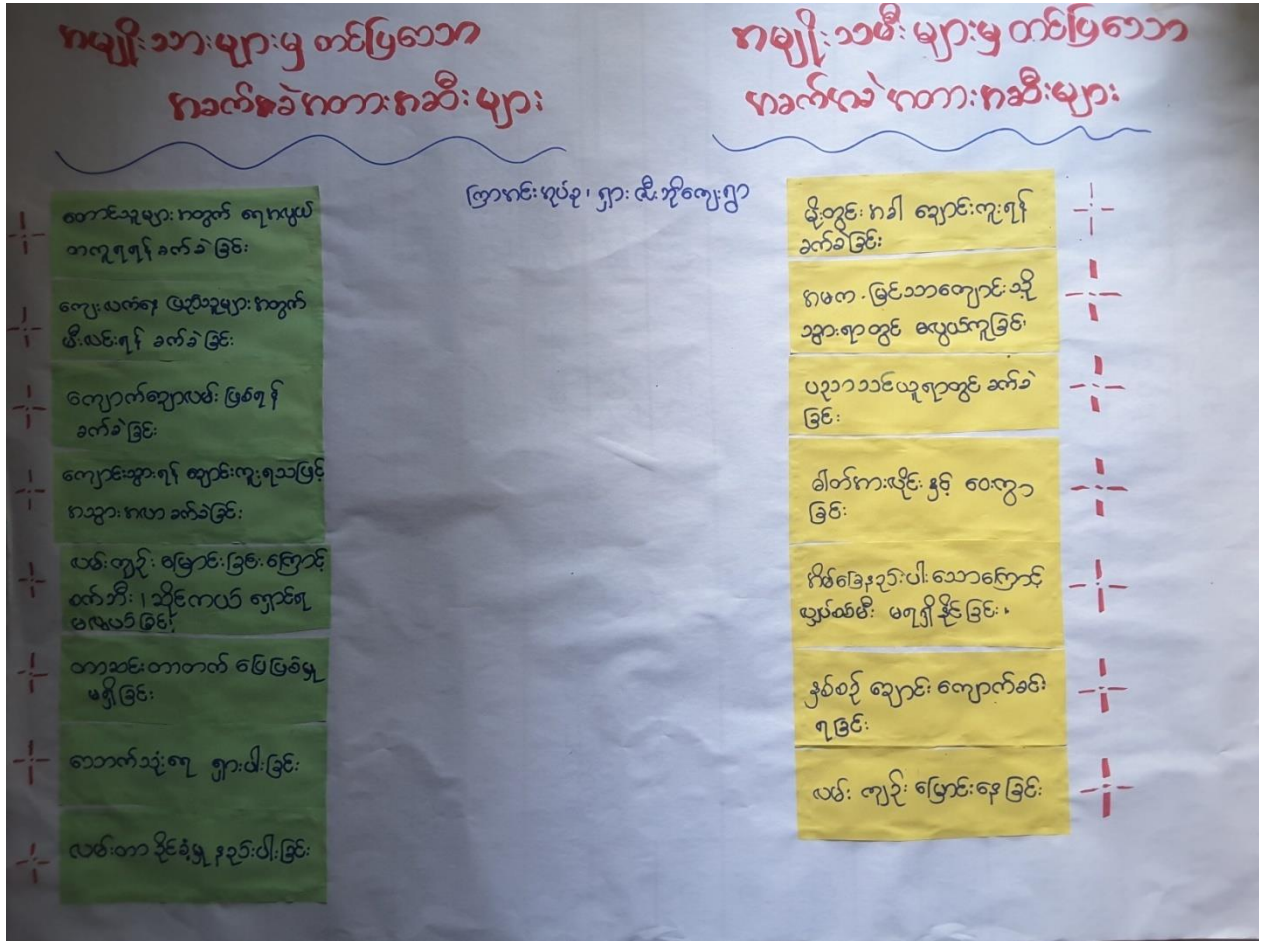 အမျိုးသားများမှ တင်ပြသော
အခက်အခဲ အတားအဆီးများ
ကြာအင်းအုပ်စု၊ ရှားဇီးဘိုကျေးရွာ
တောင်သူများအတွက် ရေအလွယ်
တကူရရန် ခက်ခဲခြင်း
ကျေးလက်နေ ပြည်သူများအတွက်
မီးလင်းရန် ခက်ခဲခြင်း
ကျောက်ချောလမ်း ဖြစ်ရန်
ခက်ခဲခြင်း
ကျောင်းသွားရန် ချောင်းကူးရသဖြင့်
အသွားအလာ ခက်ခဲခြင်း
လမ်းကျဉ်းမြောင်းခြင်းကြောင့်
စက်ဘီး၊ ဆိုင်ကယ် ရှောင်ရ
မလွယ်ခြင်း
တာဆင်းတာတက် ပြေပြစ်မှု
မရှိခြင်း
သောက်သုံးရေ ရှားပါးခြင်း
လမ်းတာ ခိုင်ခံ့မှု နည်းပါးခြင်း
အမျိုးသမီးများမှ တင်ပြသော
အခက်အခဲ အတားအဆီးများ
မိုးတွင်းအခါ ချောင်းကူးရန်
ခက်ခဲခြင်း
အမက မြင်သာကျောင်းသို့
သွားရာတွင် မလွယ်ကူခြင်း
ပညာသင်ယူရာတွင် ခက်ခဲ
ခြင်း
ဓါတ်အားလိုင်းနှင့် ဝေးကွာ
ခြင်း
အိမ်ခြေနည်းပါးသောကြောင့်
လျှပ်စစ်မီး မရရှိနိုင်ခြင်း
နှစ်စဉ် ချောင်းကျောက်ခင်း
ရခြင်း
လမ်း ကျဉ်းမြောင်းနေခြင်း